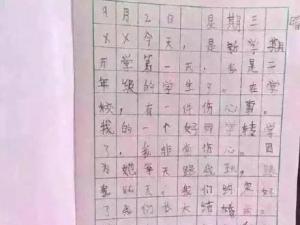 9月2日 星期三
XX今天，是新学期
开学第一天，我是二
年级的学生了。在学
校，有一件伤心事。
我的一个好同 转学
了，我非常伤心。因
为她每天跟我玩，
天，我们约定好
了，我们长大结婚。